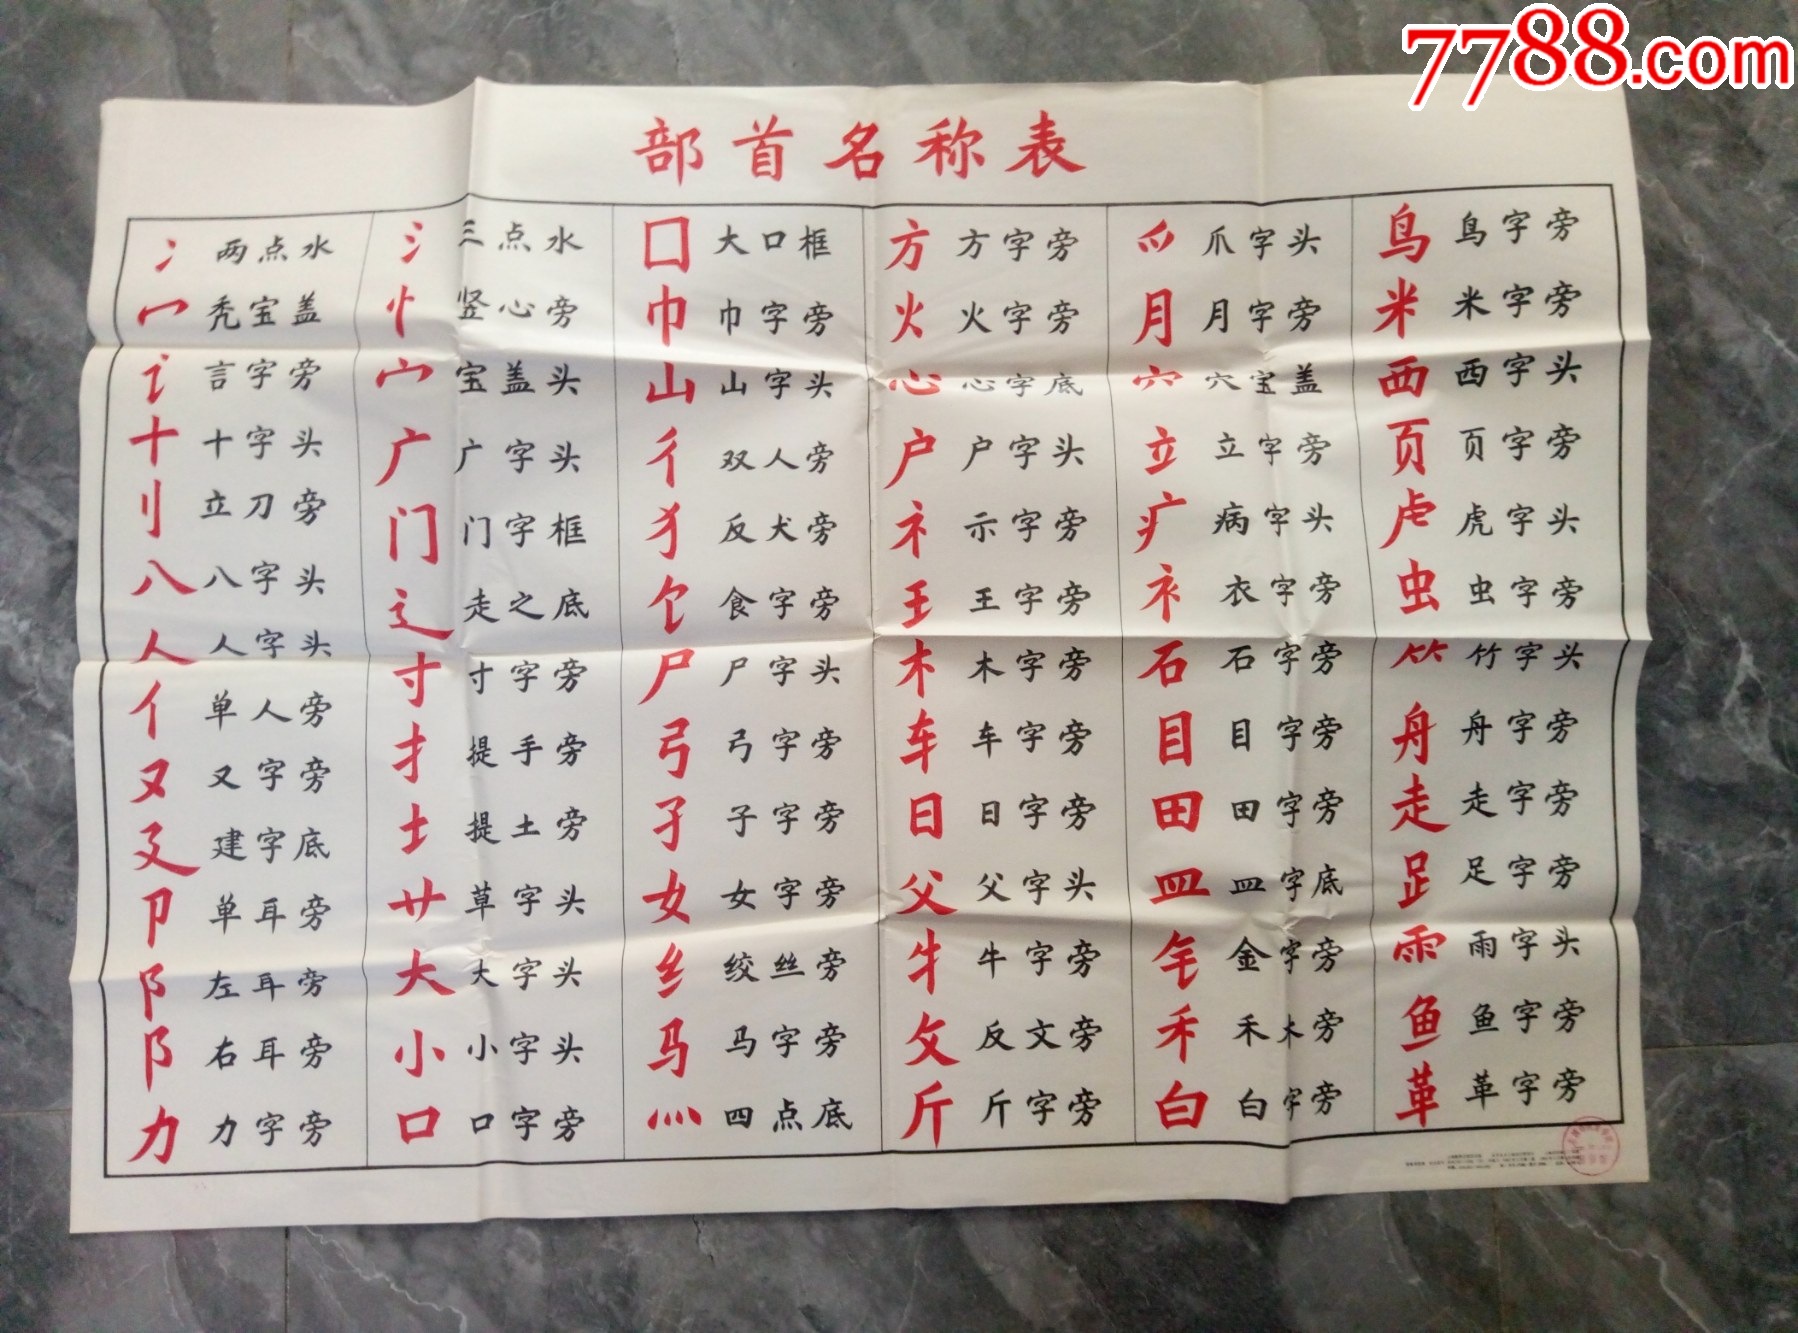 7788.com
部首名称表
冫 两点水
冖 秃宝盖
讠 言字旁
十 十字头
刂 立刀旁
八 八字头
人 人字头
亻 单人旁
又 又字旁
廴 建字底
卩 单耳旁
阝 左耳旁
阝 右耳旁
力 力字旁
氵 三点水
忄 竖心旁
宀 宝盖头
广 广字头
门 门字框
辶 走之底
寸 寸字旁
扌 提手旁
土 提土旁
艹 草字头
大 大字头
小 小字头
口 口字旁
囗 大口框
巾 巾字旁
山 山字头
彳 双人旁
犭 反犬旁
饣 食字旁
尸 尸字头
弓 弓字旁
子 子字旁
女 女字旁
纟 绞丝旁
马 马字旁
灬 四点底
方 方字旁
火 火字旁
心 心字底
户 户字头
礻 示字旁
王 王字旁
木 木字旁
车 车字旁
日 日字旁
父 父字头
牜 牛字旁
攵 反文旁
斤 斤字旁
爫 爪字头
月 月字旁
穴 穴宝盖
立 立字旁
疒 病字头
衤 衣字旁
石 石字旁
目 目字旁
田 田字旁
皿 皿字底
钅 金字旁
禾 禾木旁
白 白字旁
鸟 鸟字旁
米 米字旁
西 西字头
页 页字旁
虍 虎字头
虫 虫字旁
⺮ 竹字头
舟 舟字旁
走 走字旁
⻊ 足字旁
雨 雨字头
鱼 鱼字旁
革 革字旁